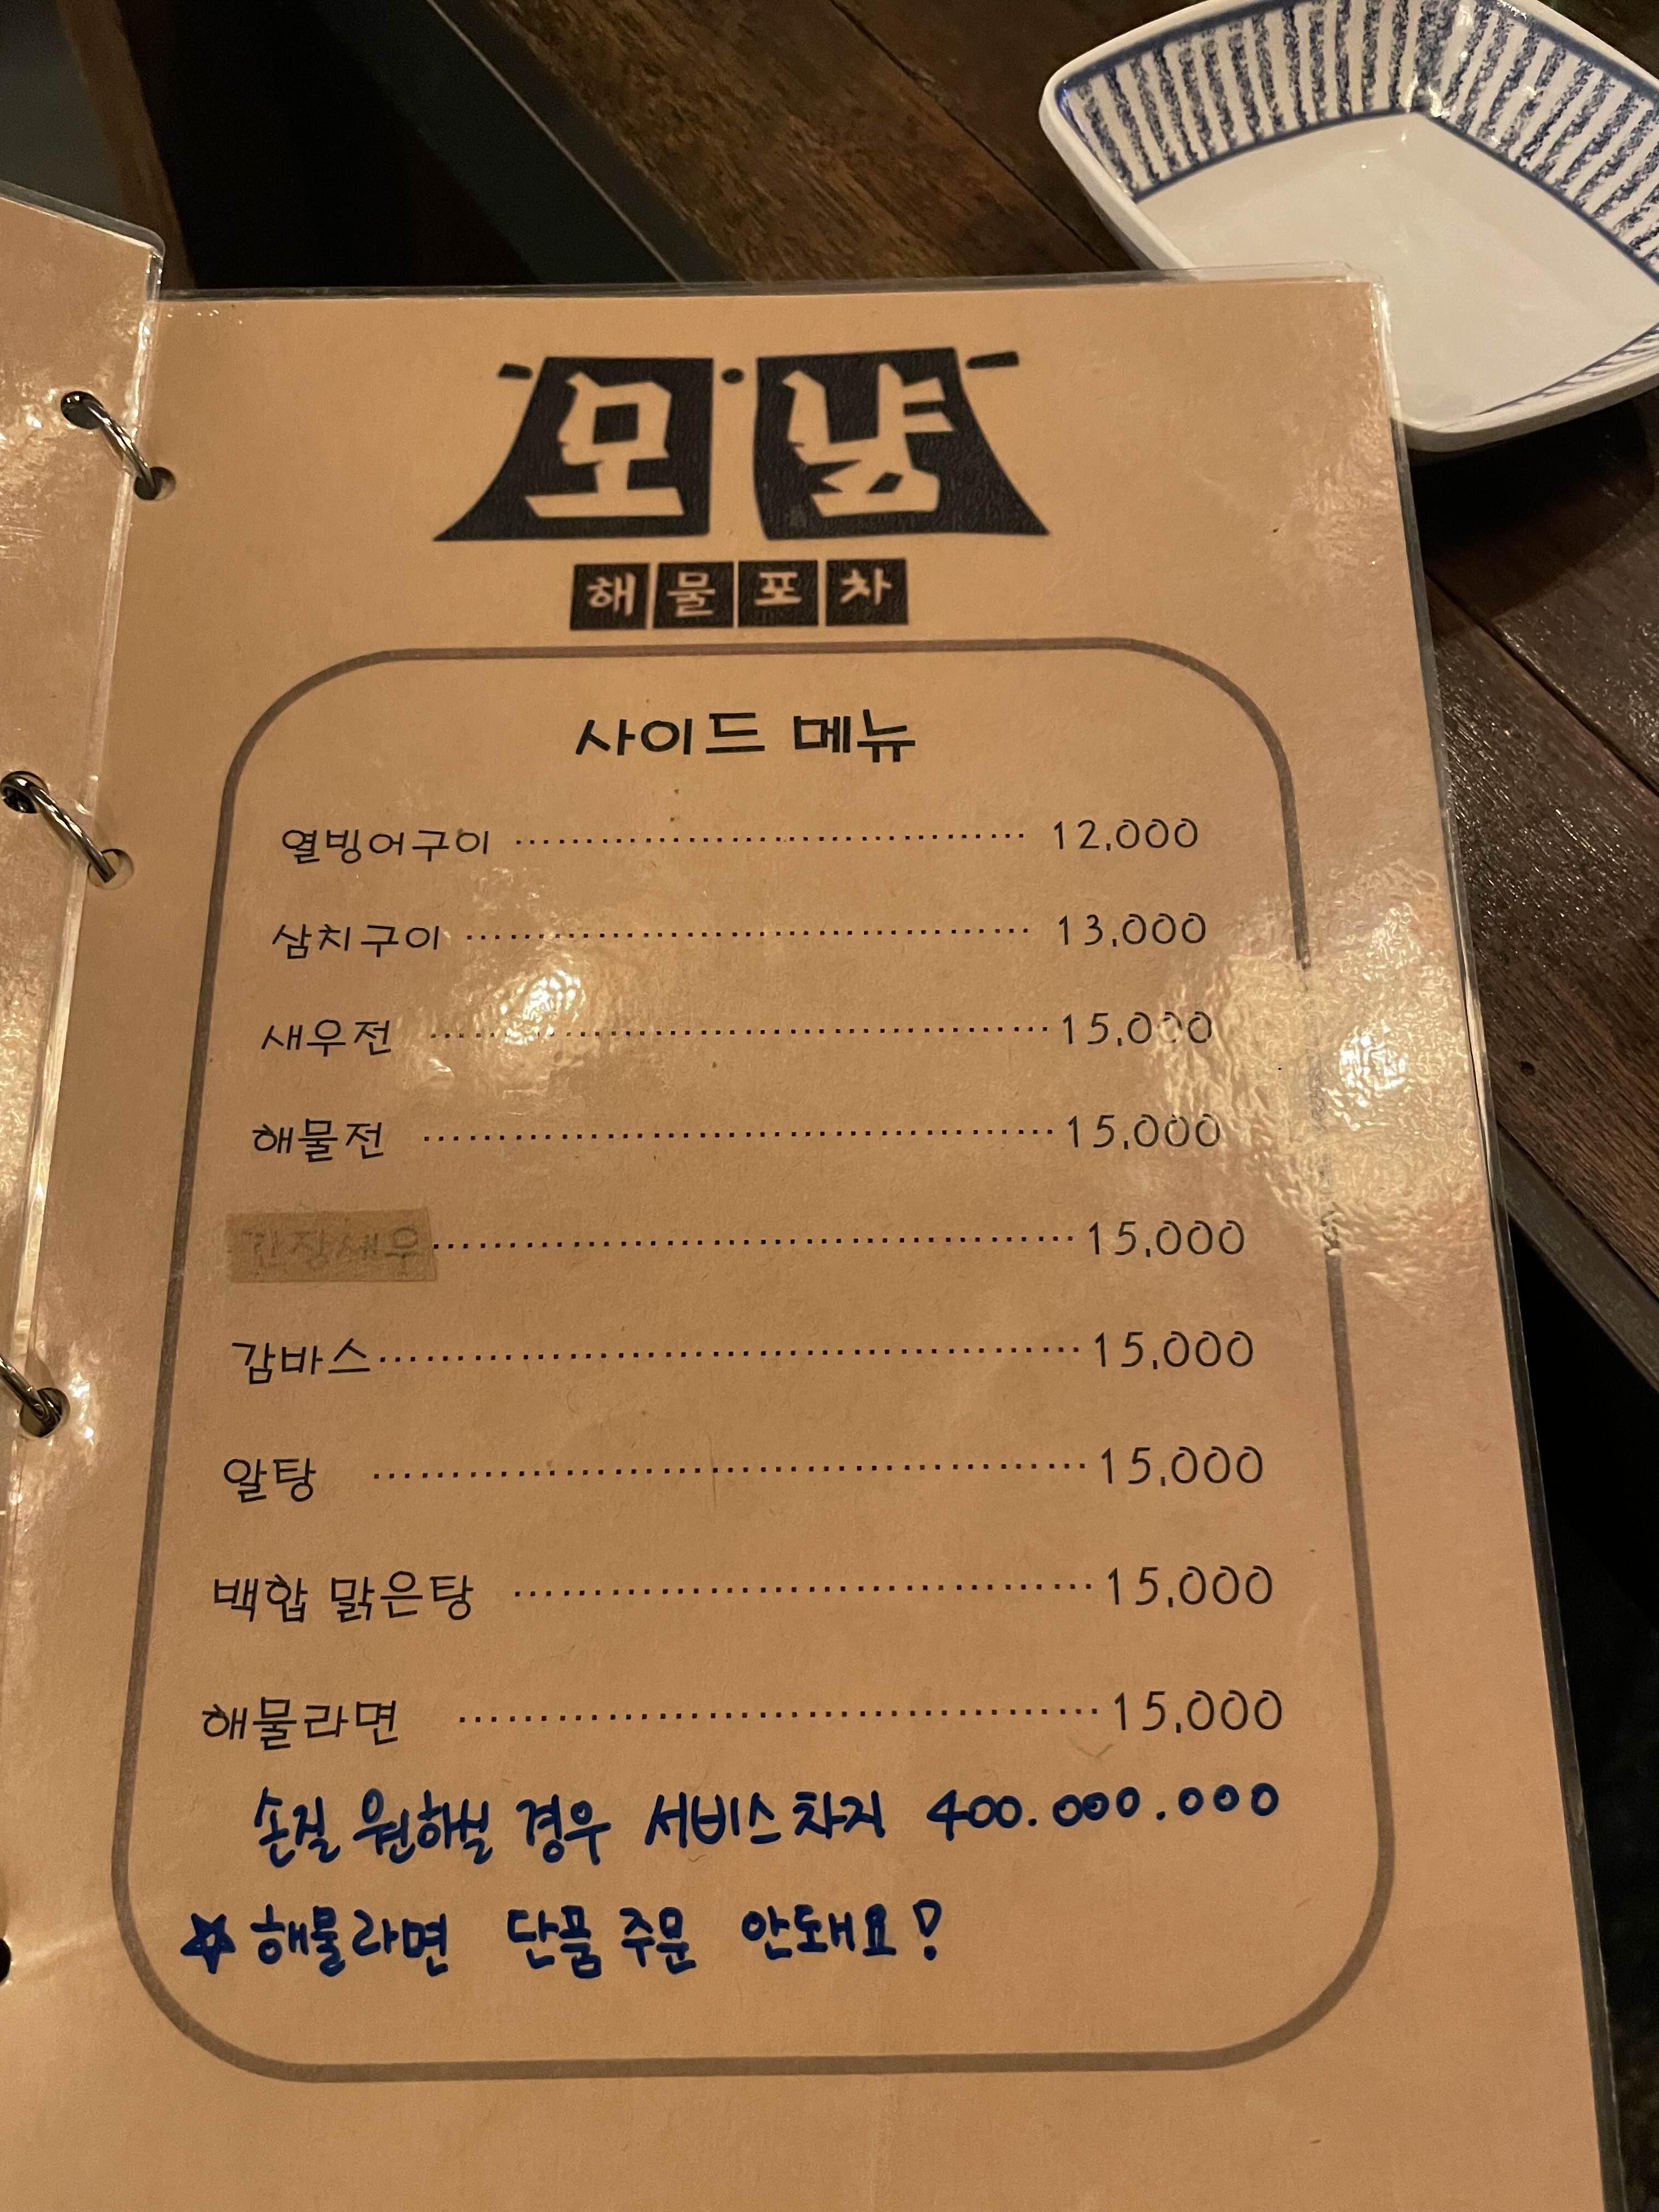 모냥
해물포차
사이드 메뉴
열빙어구이 12,000
삼치구이 13,000
새우전 15,000
해물전 15,000
간장새우 15,000
감바스 15,000
알탕 15,000
백합 맑은탕 15,000
해물라면 15,000
손질 원하실 경우 서비스차지 400.000.000
☆ 해물라면 단품 주문 안돼요!